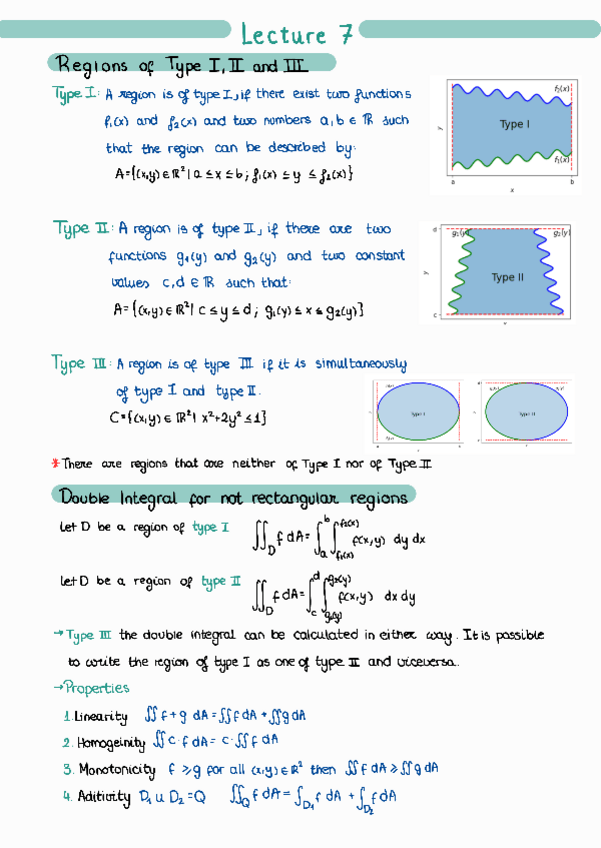 Lecture 7
Regions of Type I, II and III
Type I: A region is of type I, if there exist two functions
f₁(x) and f₂(x) and two numbers a,b ∈ ℝ such
that the region can be described by:
A={(x,y)∈ℝ²| a ≤ x ≤ b ; f₁(x) ≤ y ≤ f₂(x)}
f₂(x)
Type I
f₁(x)
y
a
b
x
Type II: A region is of type II, if there are two
functions g₁(y) and g₂(y) and two constant
values c,d ∈ ℝ such that:
A={(x,y)∈ℝ²| c ≤ y ≤ d ; g₁(y) ≤ x ≤ g₂(y)}
d
g₁(y)
g₂(y)
Type II
y
c
x
Type III: A region is of type III if it is simultaneously
of type I and type II.
C={(x,y) ∈ ℝ²| x²+2y² ≤ 1}
Type I
Type II
*There are regions that are neither of Type I nor of Type II
Double Integral for not rectangular regions
Let D be a region of type I ∬_D f dA = ∫_a^b ∫_{f₁(x)}^{f₂(x)} f(x,y) dy dx
Let D be a region of type II ∬_D f dA = ∫_c^d ∫_{g₁(y)}^{g₂(y)} f(x,y) dx dy
→Type III the double integral can be calculated in either way. It is possible
to write the region of type I as one of type II and viceversa.
→Properties
1. Linearity ∬ f+g dA = ∬ f dA + ∬ g dA
2. Homogeinity ∬ c·f dA = c·∬ f dA
3. Monotonicity f ≥ g for all (x,y) ∈ ℝ² then ∬ f dA ≥ ∬ g dA
4. Aditivity D₁ ∪ D₂ = Q ∬_Q f dA = ∫_{D₁} f dA + ∫_{D₂} f dA